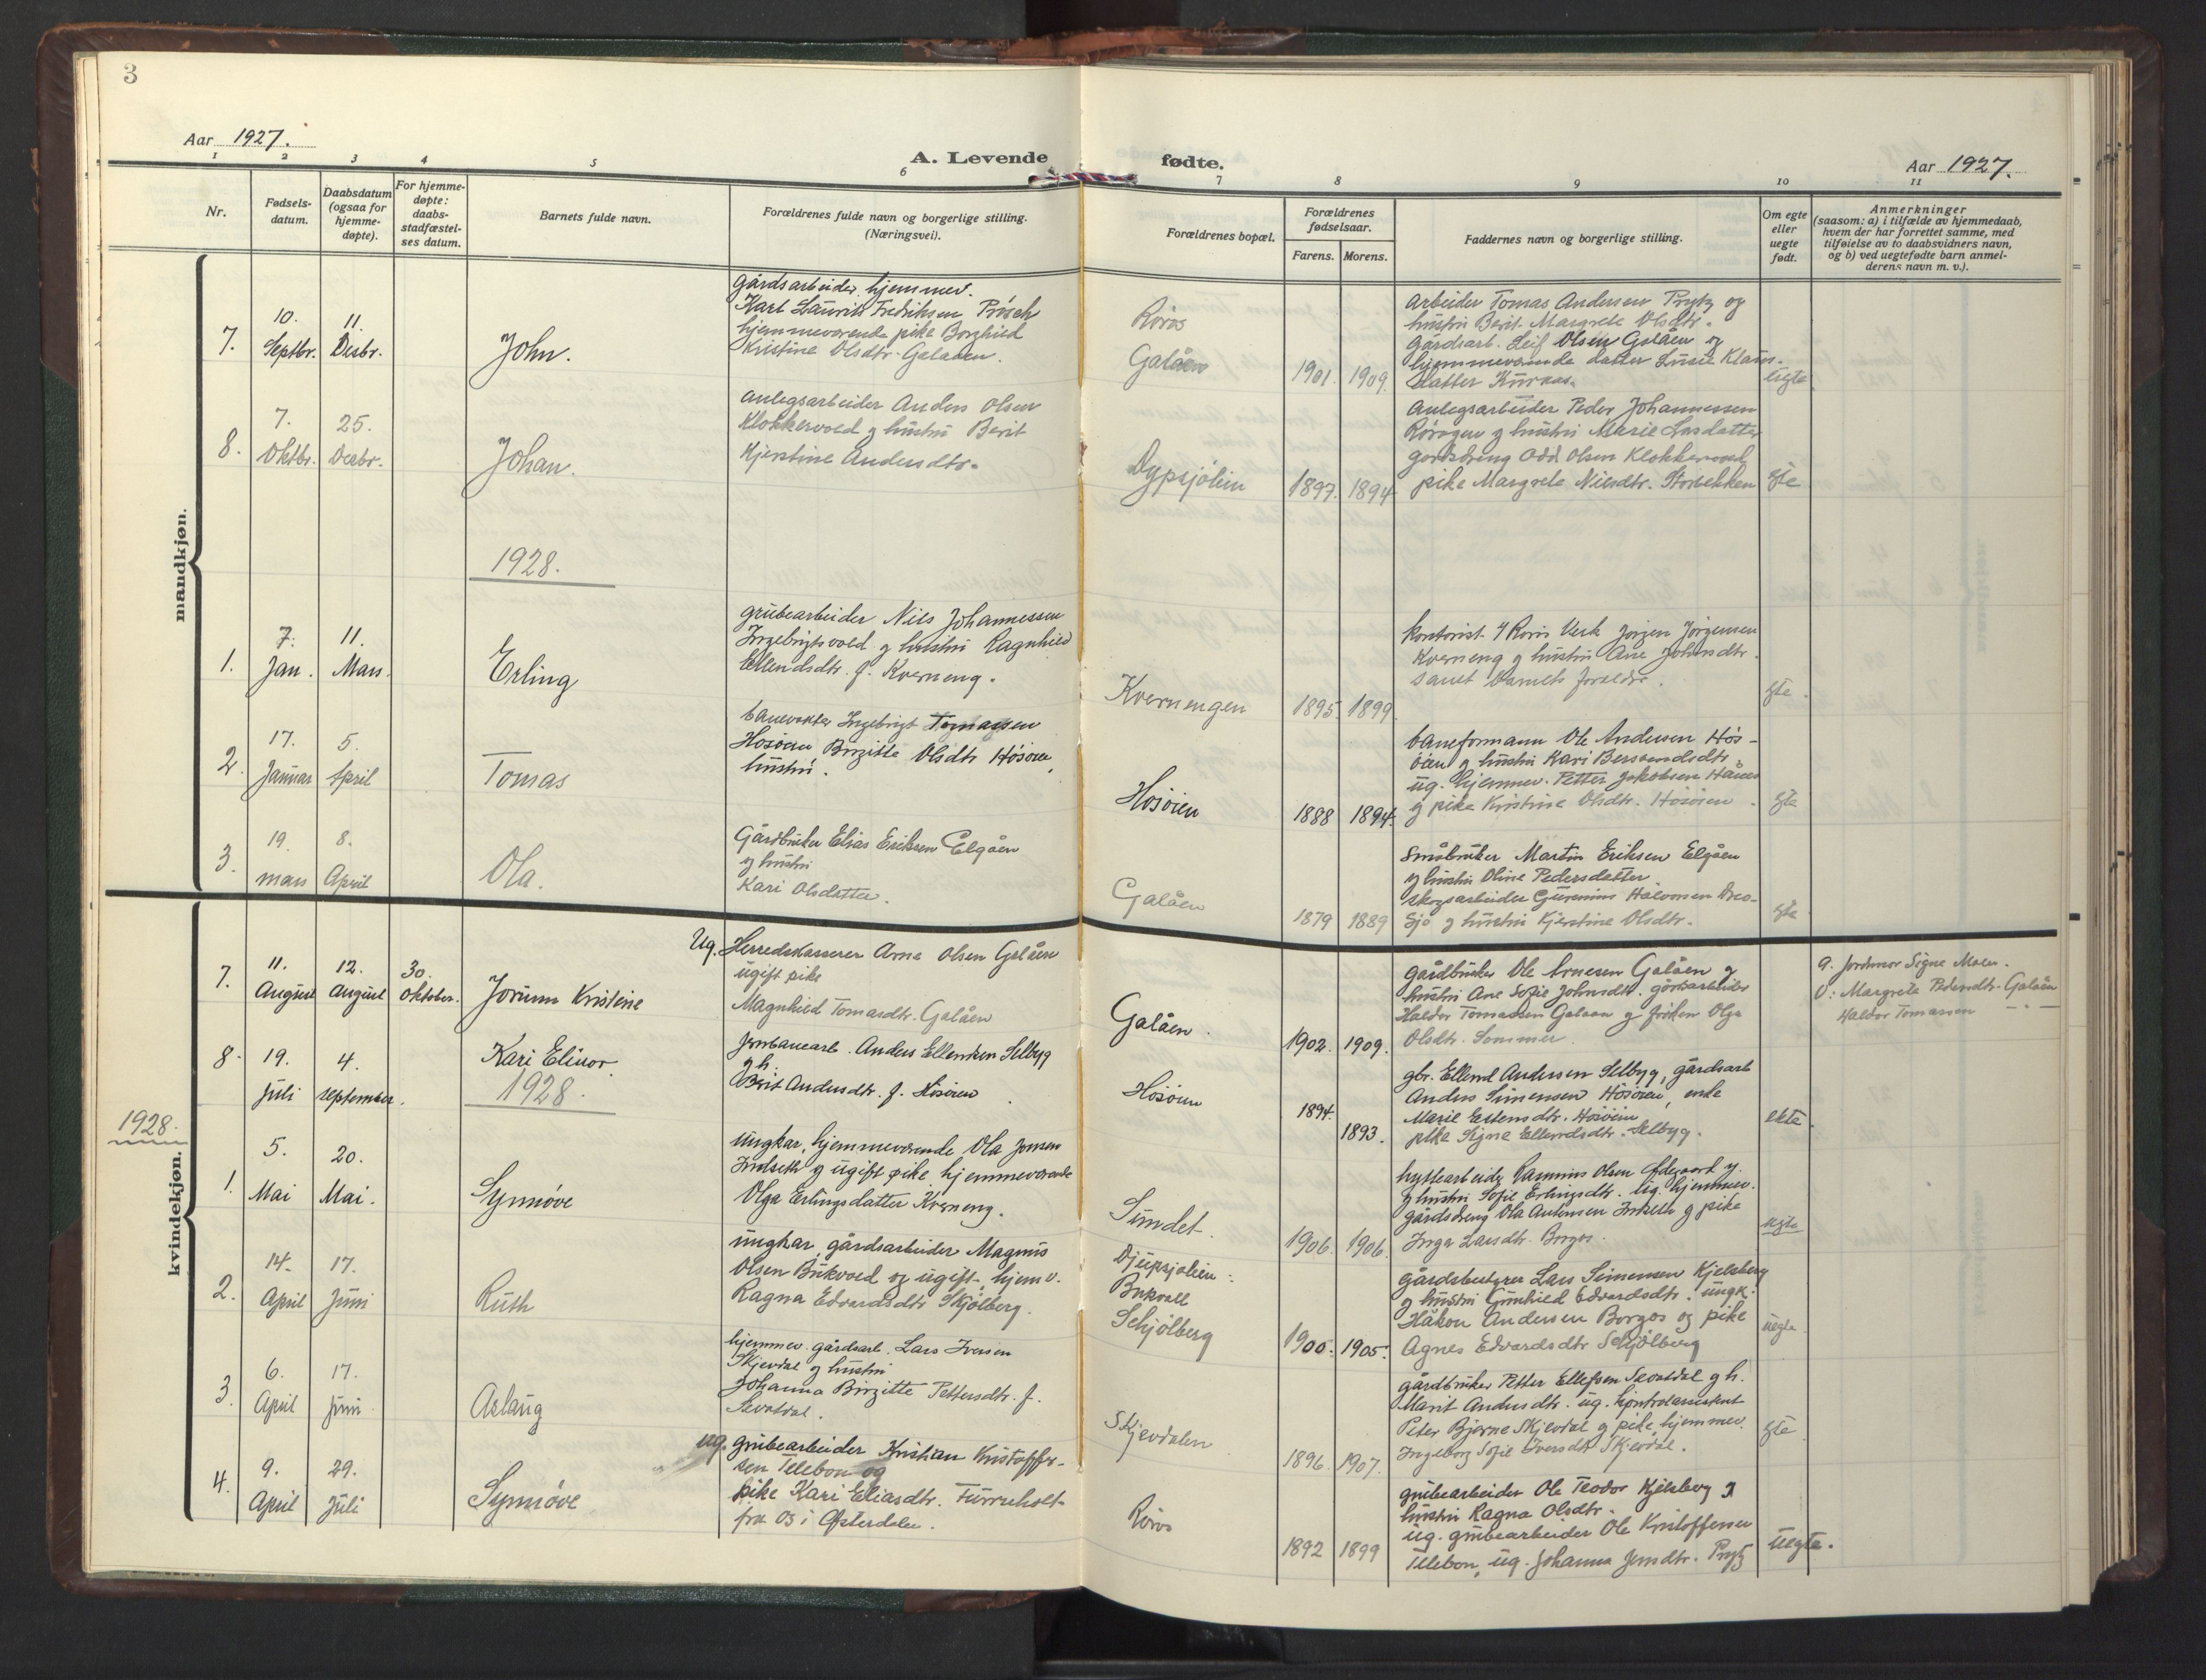 3
Aar 1927.
A. Levende fødte.
Aar 1927.
1 2 3 4 5 6 7 8 9 10 11
Nr.
Fødsels-
datum.
Daabsdatum
(ogsaa for
hjemme-
døpte).
For hjemme-
døpte:
daabs-
stadfæstel-
ses datum.
Barnets fulde navn.
Forældrenes fulde navn og borgerlige stilling.
(Næringsvei).
Forældrenes bopæl.
Forældrenes
fødselsaar.
Farens. Morens.
Faddernes navn og borgerlige stilling.
Om egte
eller
uegte
født.
Anmerkninger
(saasom: a) i tilfælde av hjemmedaab,
hvem der har forrettet samme, med
tilføielse av to daabsvidners navn,
og b) ved uegtefødte barn anmel-
derens navn m. v.).
mandkjøn.
7.
10.
Septbr.
11.
Desbr.
John.
gårdsarbeider hjemmev.
Karl Laurits Fredriksen Prösch
hjemmeværende pike Borghild
Kristine Olsdtr. Galaaen.
Røros
Galåen
1901. 1909.
arbeider Tomas Andersen Prytz og
hustru Berit Margrete Olsdtr.
gårdsarb. Leif Olsen Galåen og
hjemmeværende datter Lusie Klaus-
datter Kuraas.
uegte
8.
7.
Oktbr.
25.
Desbr.
Johan.
anlegsarbeider Anders Olsen
Klokkervold og hustru Berit
Kjerstine Andersdtr.
Dypsjølien
1897. 1894
anlegsarbeider Peder Johannessen
Rørogen og hustru Marie Larsdatter
gårdsdreng Odd Olsen Klokkervold
pike Margrete Nilsdtr. Storbekken
egte
1928.
1.
7.
Jan.
11.
Mars.
Erling
grubearbeider Nils Johannessen
Ingebrigtsvold og hustru Ragnhild
Ellendsdtr. f. Kverneng.
Kvernengen
1895. 1899
kontorist v/ Røros Verk Jørgen Jørgensen
Kverneng og hustru Ane Johnsdtr.
samt barnets foreldre.
egte.
2.
17.
Januar
5.
April
Tomas
banevokter Ingebrigt Tomassen
Hosøien, Birgitte Olsdtr Høsøien,
hustru.
Høsøien
1888 1894.
baneformann Ole Andersen Høs-
øien og hustru Kari Bersvendsdtr.
ug. hjemmev. Petter Jakobsen Hånes
og pike Kristine Olsdtr. Høsøien.
egte
3.
19.
mars
8.
April
Ola.
Gårdbruker Elias Eriksen Elgåen
og hustru
Kari Olsdatter.
Galåen
1879 1889
Småbruker Martin Eriksen Elgåen
og hustru Oline Pedersdatter
skogsarbeider Gunnius Halvorsen Dreo-
sjø og hustru Kjerstine Olsdtr.
egte
kvindekjøn.
7.
11.
August
12.
August
30.
Oktober.
Jorunn Kristine
Ug. Herredskasserer Arne Olsen Galåen
ugift pike
Magnhild Tomasdtr. Galåen
Galåen.
1902. 1909.
gårdbruker Ole Arnesen Galåen og
hustru Ane Sofie Johnsdtr. gårdsarbeider
Haldor Tomassen Galaaen og frøken Olga
Olsdtr. Sommer.
a. jordmor Signe Moen.
V: Margrete Pedersdtr. Galåen
Haldor Tomassen — " —
8.
19.
Juli
4.
september.
Kari Elinor.
Jernbanearb. Anders Ellendsen Selbyg
og h.
Berit Andersdtr. f. Høsøien
Høsøien
1894.
1893.
gbr. Ellend Andersen Selbyg, gårdsarb
Anders Simensen Høsøien, enke
Marie Estensdtr. Høsøien
pike Signe Ellendsdtr. Selbyg.
ekte.
1928.
1928.
1.
5.
Mai
20.
Mai.
Synnøve
ungkar, hjemmeværende Ola Jonsen
Indseth og ugift pike hjemmeværende
Olga Erlingsdatter Kverneng.
Sundet.
1906. 1906.
hyttearbeider Rasmus Olsen Ødegaard og
og hustru Sofie Erlingsdtr. ug. hjemmev.
gårdsdreng Ola Antonsen Indseth og pike
Inga Larsdtr. Borgos.
uegte
2.
14.
April
17.
Juni
Ruth
ungkar, gårdsarbeider Magnus
Olsen Bukvold og ugift hjemv.
Ragna Edvardsdtr Skjølberg.
Djupsjølien:
Bukvoll
Schjølberg
1900. 1905.
gårdsbestyrer Lars Simensen Kjelsberg
og hustru Gunhild Edvardsdtr. ungk.
Håkon Andersen Borgos og pike
Agnes Edvardsdtr Schjølberg
uegte
3.
6.
April
17.
Juni
Aslaug
hjemmev. gårdsarb. Lars Iversen
Skjevdal og hustru
Johanna Birgitte Pettersdtr. f.
Sevatdal.
Skjevdalen
1896. 1907.
gårdbruker Petter Ellefsen Sevatdal og h.
Marit Andersdtr. ug. kontrolassistent
Peter Bjarne Skjevdal og pike, hjemmev.
Ingeborg Sofie Iversdtr Skjevdal.
egte
4.
9.
April
29.
Juli
Synnøve
ug. grubearbeider Kristian Kristoffer-
sen Tellebon og
pike Kari Eliasdtr. Furruholt
fra Os i Østerdalen.
Røros
1892 1899
grubearbeider Ole Teodor Kjelsberg og
hustru Ragna Olsdtr.
ug. grubearbeider Ole Kristoffersen
Tellebon, ug. Johanna Jensdtr. Prytz
uegte.